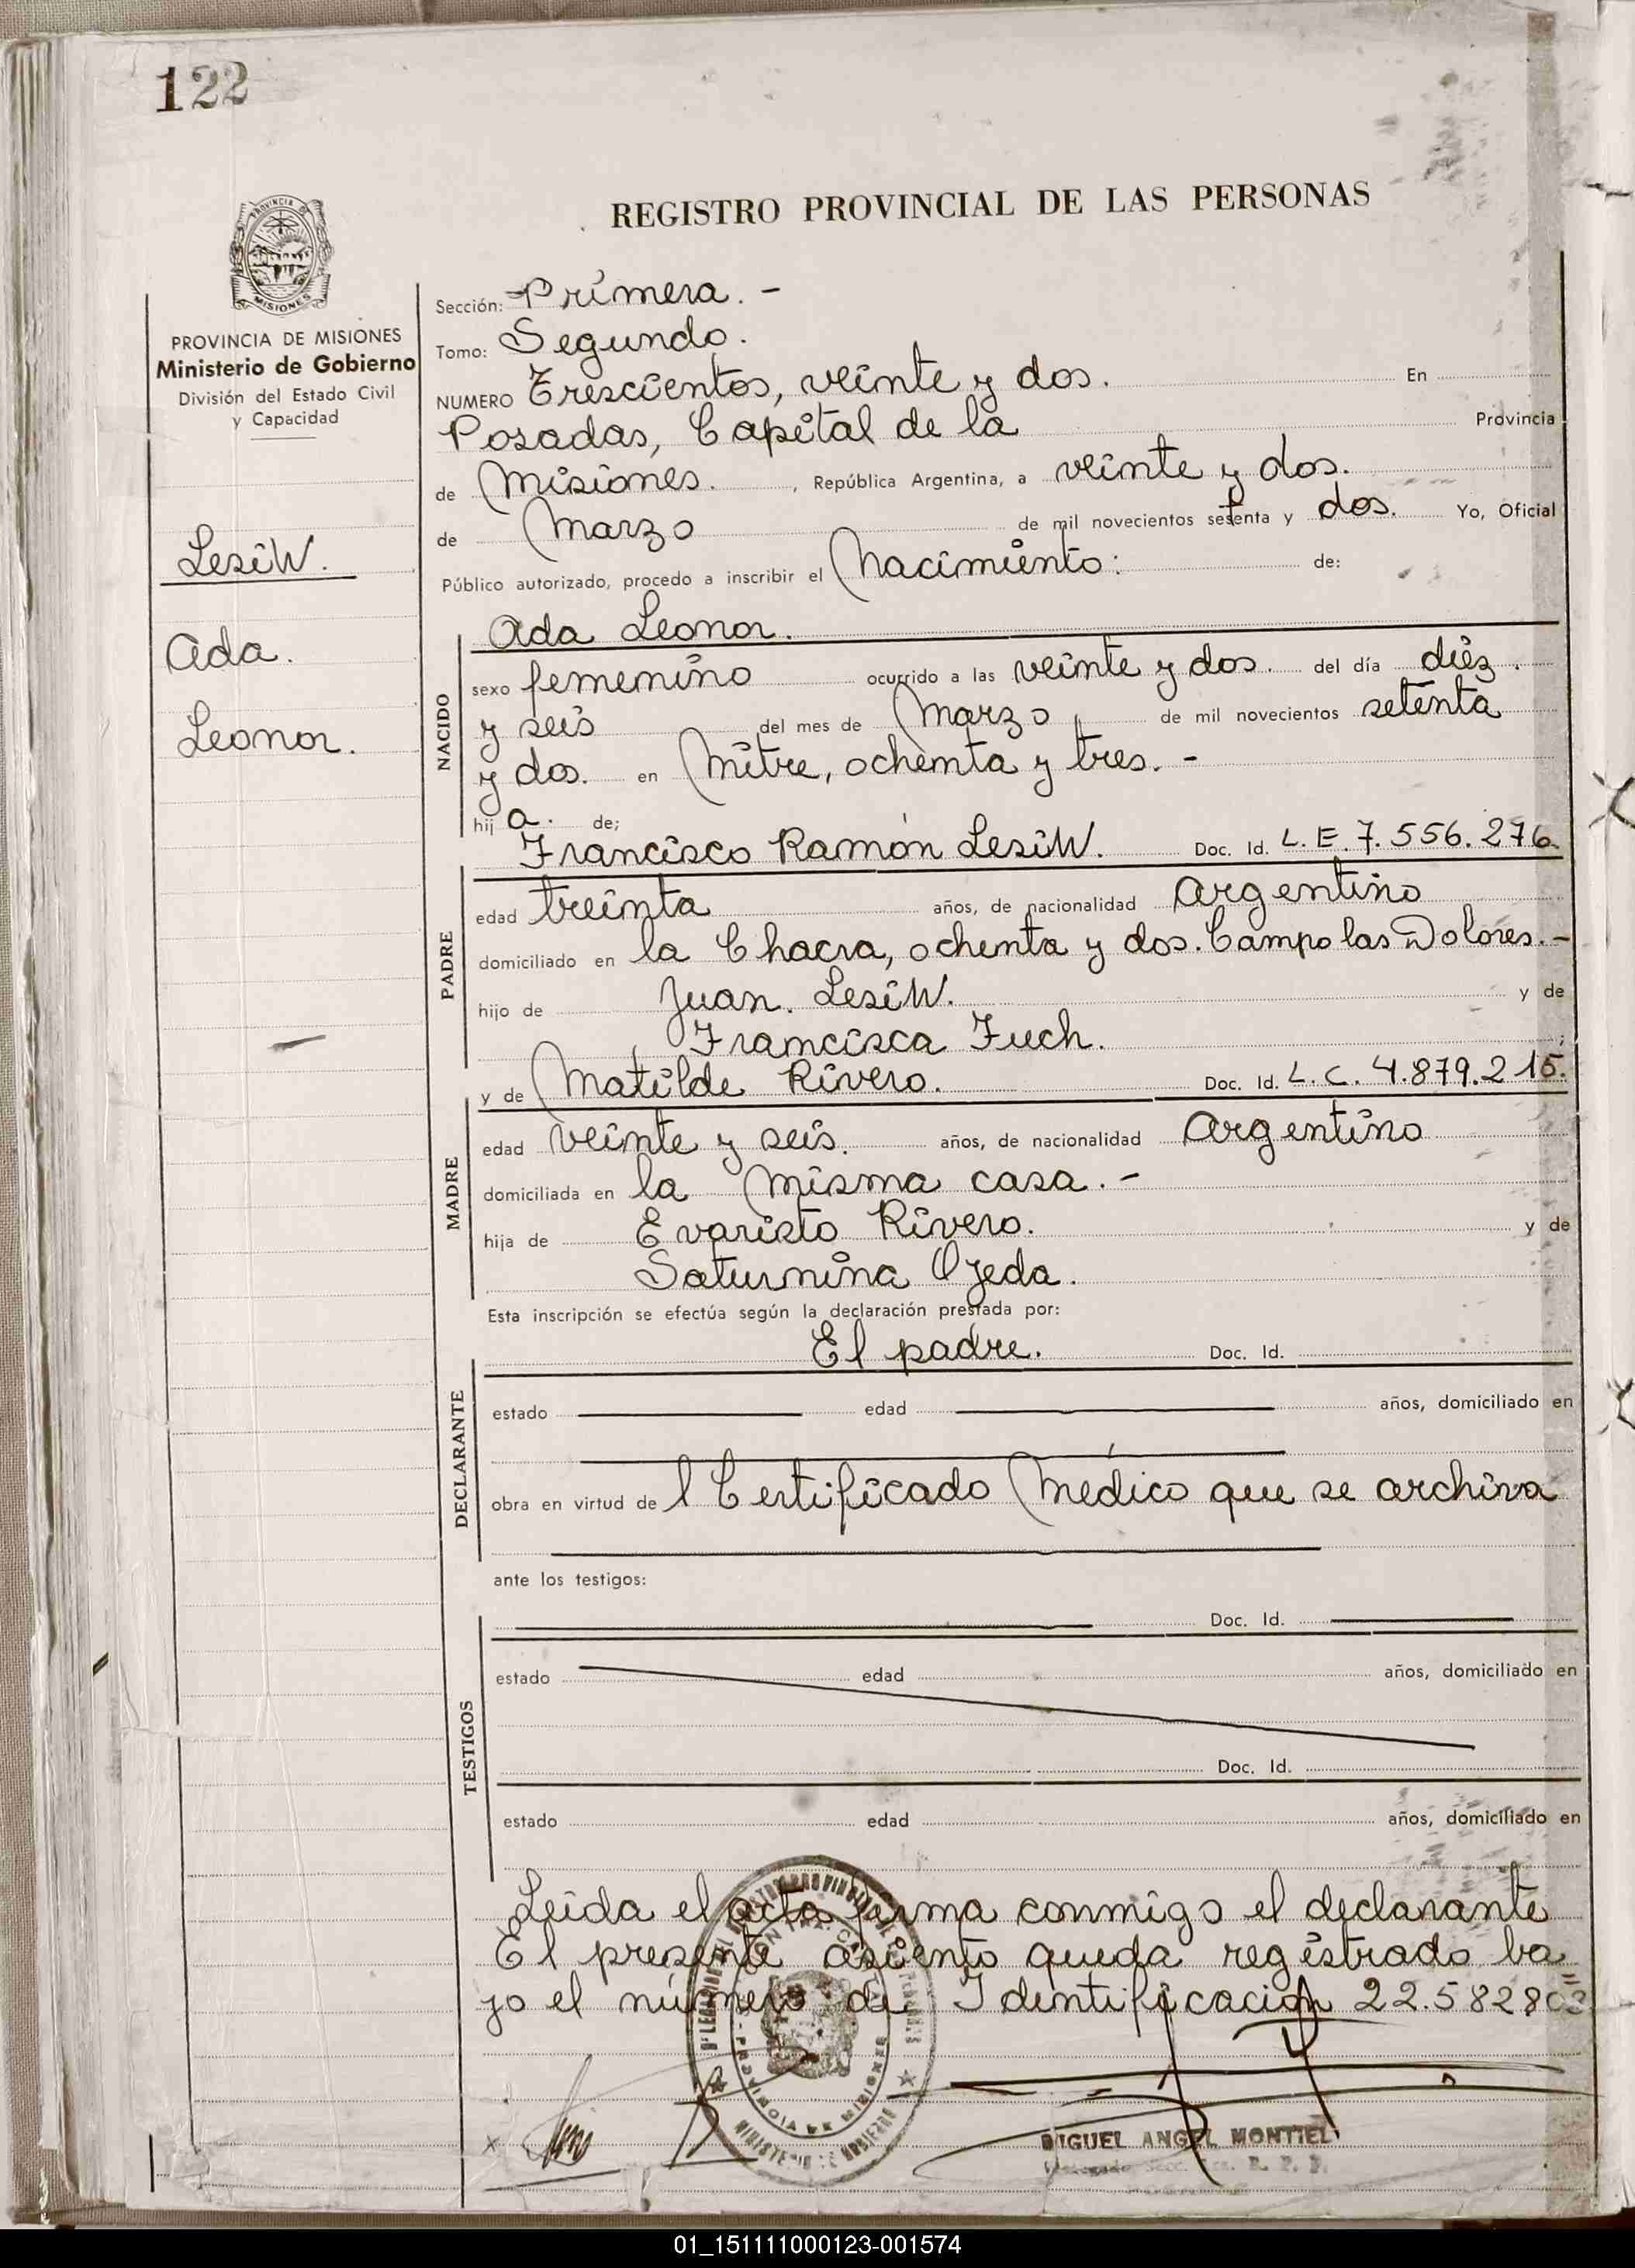 122
REGISTRO PROVINCIAL DE LAS PERSONAS
PROVINCIA DE MISIONES
MISIONES
PROVINCIA DE MISIONES
Ministerio de Gobierno
División del Estado Civil
y Capacidad
Lesiw.
Ada.
Leonor.
Sección: Primera. -
Tomo: Segundo.
NUMERO Trescientos, veinte y dos. En
Posadas, Capital de la Provincia
de Misiones. , República Argentina, a veinte y dos.
de Marzo de mil novecientos setenta y dos. Yo, Oficial
Público autorizado, procedo a inscribir el Nacimiento: de:
NACIDO
Ada Leonor.
sexo femenino ocurrido a las veinte y dos. del día diez.
y seis del mes de Marzo, de mil novecientos setenta
y dos. en Mitre, ochenta y tres. -
hij a. de;
PADRE
Francisco Ramón Lesiw. Doc. Id. L.E. 7.556.276.
edad treinta años, de nacionalidad Argentino
domiciliado en la Chacra, ochenta y dos. Campo las Dolores. -
hijo de Juan. Lesiw. y de
Francisca Fuch. ;
MADRE
y de Matilde Rivero. Doc. Id. L.C. 4.879.215.
edad veinte y seis. años, de nacionalidad Argentino
domiciliada en la misma casa. -
hija de Evaristo Rivero. y de
Saturnina Ojeda.
Esta inscripción se efectúa según la declaración prestada por:
DECLARANTE
El padre. Doc. Id.
estado edad años, domiciliado en
obra en virtud de l Certificado Médico que se archiva
ante los testigos:
TESTIGOS
Doc. Id.
estado edad años, domiciliado en
Doc. Id.
estado edad años, domiciliado en
Leida el acta firma conmigo el declarante
El presente asiento queda registrado ba
jo el número de Identificación 22.582803
PROVINCIA DE MISIONES
MINISTERIO DE GOBIERNO
MIGUEL ANGEL MONTIEL
01_151111000123-001574